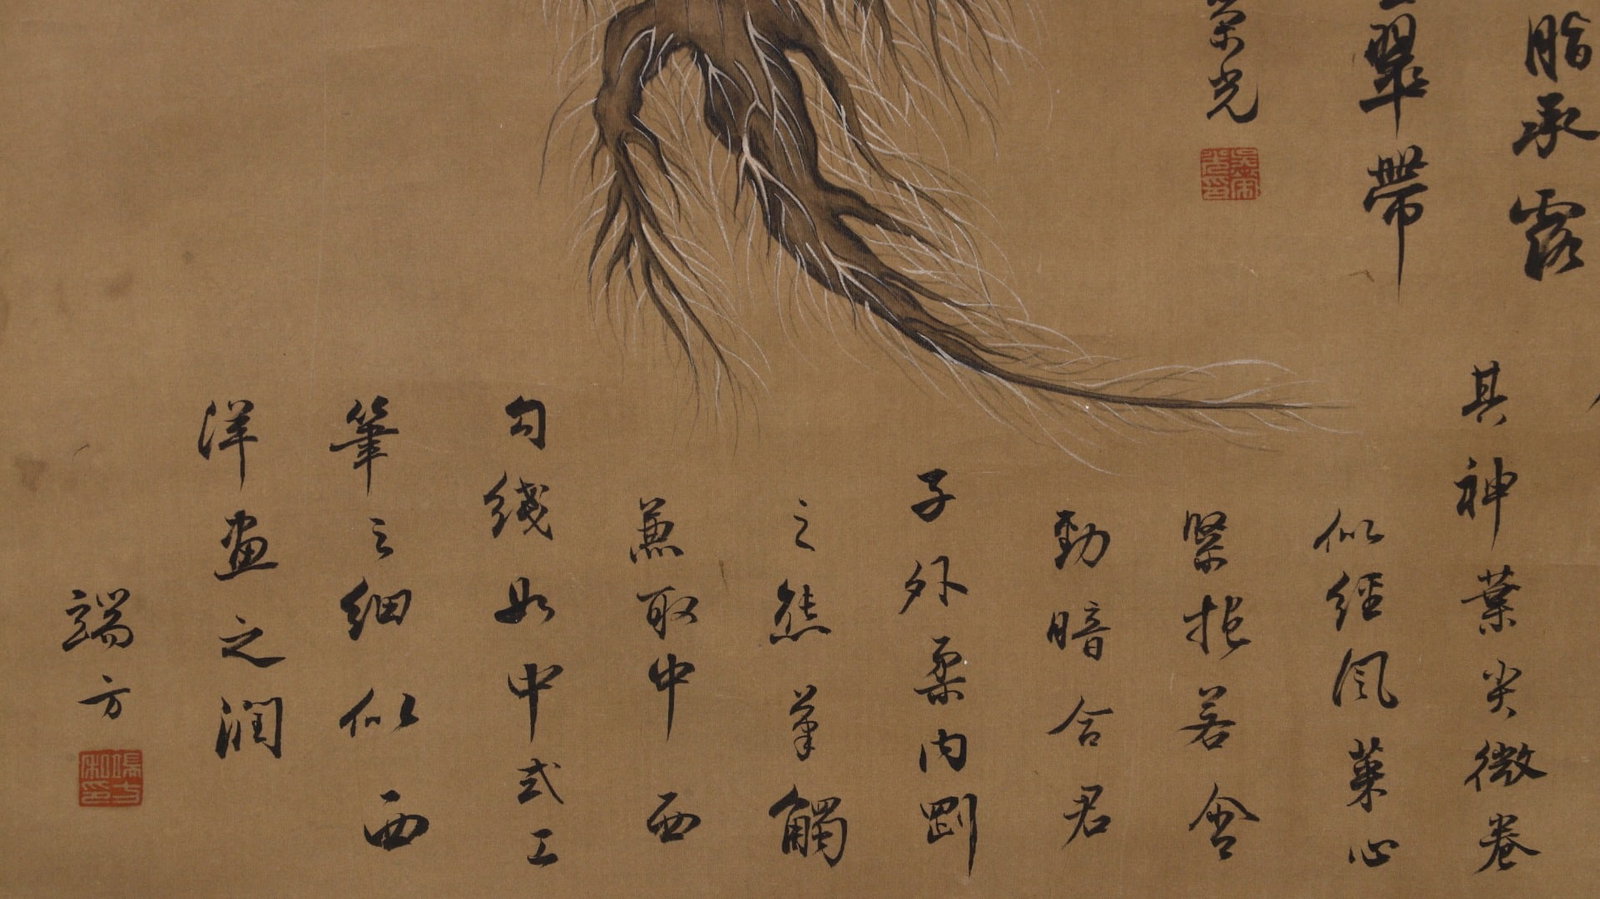 脂承露
翠帶
榮光
其神葉尖微卷
似經風菜心
緊抱若含
勁暗合君
子外柔內剛
之態筆觸
兼取中西
勾綫如中式工
筆之細似西
洋畫之潤
端方